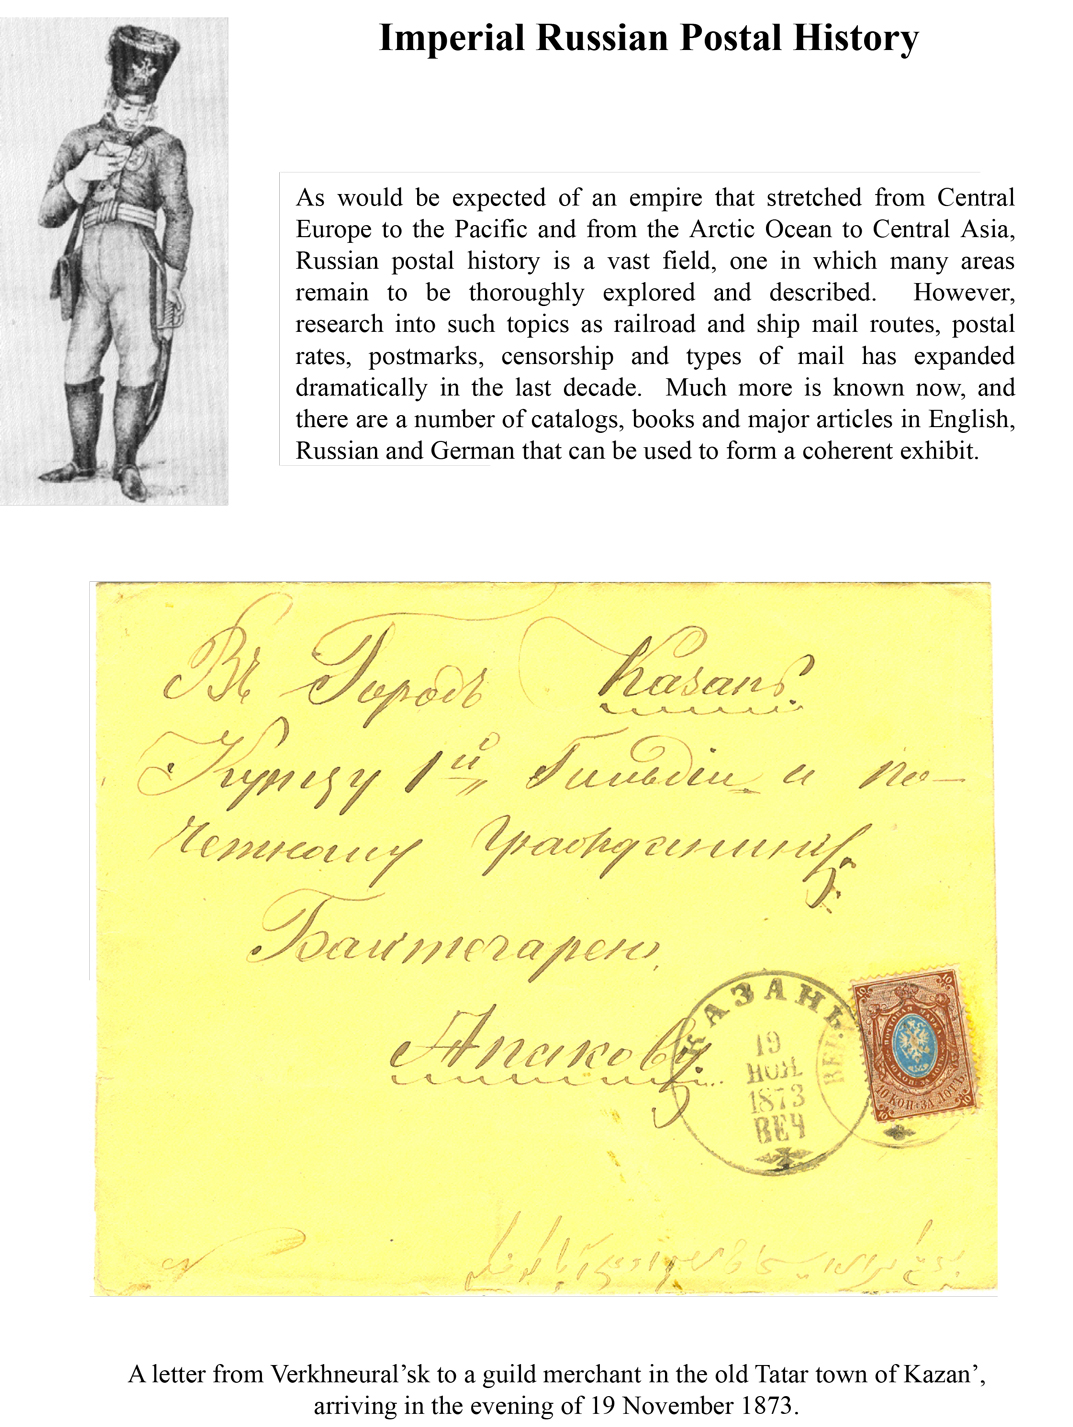 Imperial Russian Postal History
As would be expected of an empire that stretched from Central
Europe to the Pacific and from the Arctic Ocean to Central Asia,
Russian postal history is a vast field, one in which many areas
remain to be thoroughly explored and described. However,
research into such topics as railroad and ship mail routes, postal
rates, postmarks, censorship and types of mail has expanded
dramatically in the last decade. Much more is known now, and
there are a number of catalogs, books and major articles in English,
Russian and German that can be used to form a coherent exhibit.
Въ Городъ Казань
Купцу 1й Гильдіи и по-
четному Гражданину
Апакову
КАЗАНЬ
19
НОЯ
1873
ВЕЧ
ВЕР
10 КОП. ЗА ЛОТЪ
A letter from Verkhneural’sk to a guild merchant in the old Tatar town of Kazan’,
arriving in the evening of 19 November 1873.